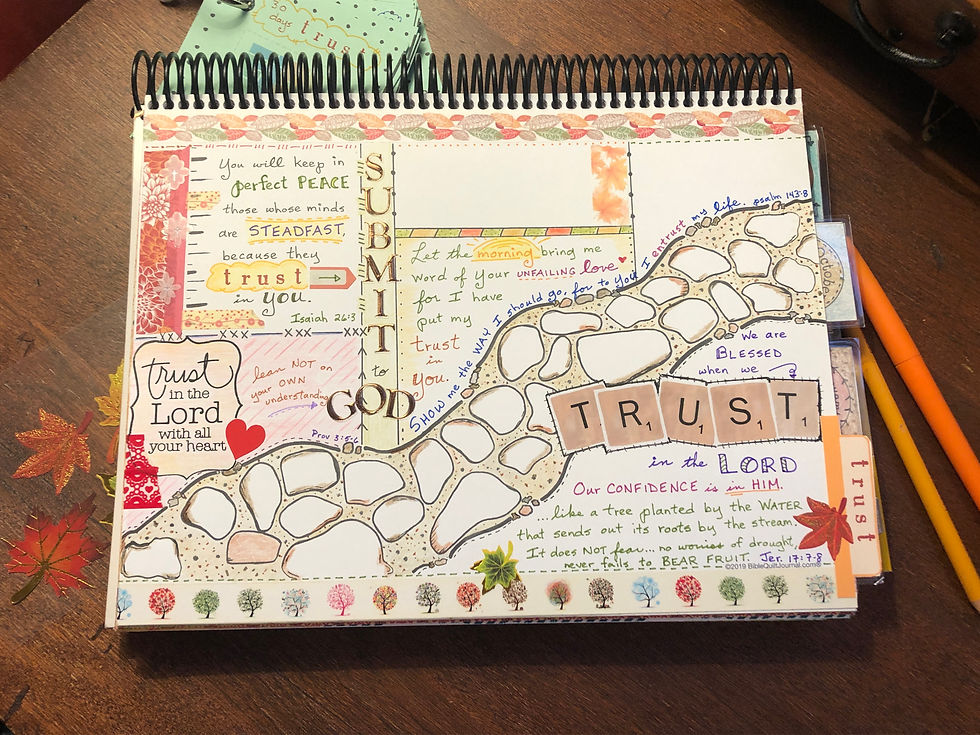 30
days
trust
You will keep in
perfect PEACE
those whose minds
are STEADFAST,
because they
trust
in you.
Isaiah 26:3
SUBMIT
to
GOD
trust
in the
Lord
with all
your heart
lean NOT on
your OWN
understanding
Prov 3:5-6
Let the morning bring me
word of your UNFAILING love
for I have
put my
trust
in
You.
SHOW me the WAY I should go, for to You I entrust my life. psalm 143:8
we are
BLESSED
when we
T R U S T
1 1 1 1 1
in the LORD
OUR CONFIDENCE is in HIM.
...like a tree planted by the WATER
that sends out its roots by the stream.
It does NOT fear... no worries of drought,
never fails to BEAR FRUIT. Jer. 17:7-8
©2019 BibleQuiltJournal.com®
trust